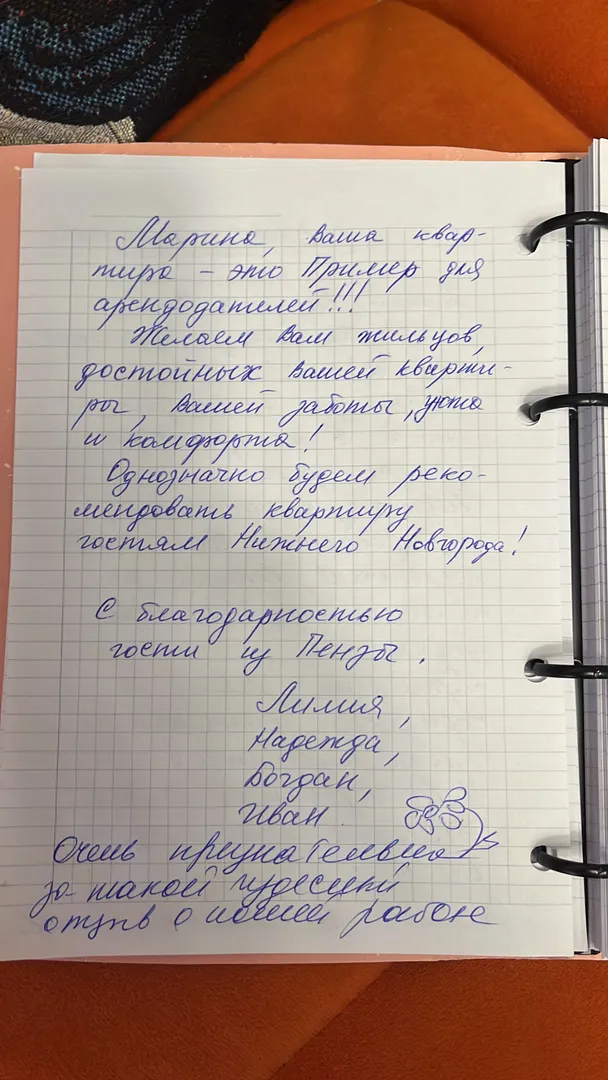 Марина, Ваша квар-
тира – это Пример для
арендодателей!!!
Желаем Вам жильцов,
достойных Вашей кварти-
ры, Вашей заботы, уюта
и комфорта!
Однозначно будем реко-
мендовать квартиру
гостям Нижнего Новгорода!
С благодарностью
гости из Пензы.
Лилия,
Надежда,
Богдан,
Иван.
Очень признательна
за такой чудесный
отзыв о нашей работе